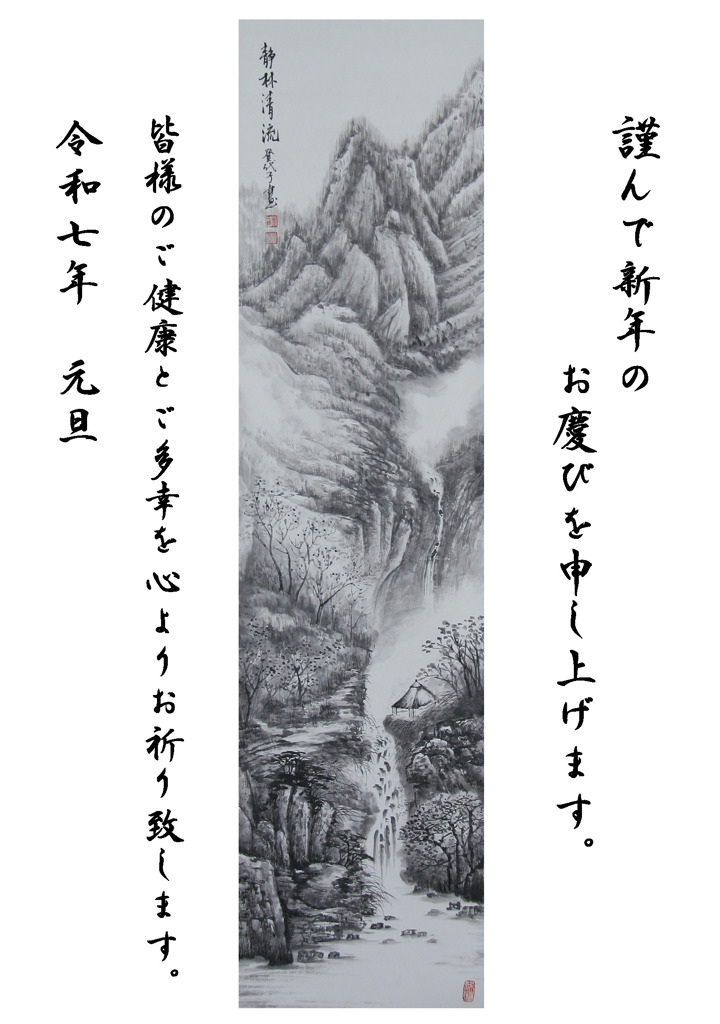 謹んで新年の
お慶びを申し上げます。
静林清流
皆様のご健康とご多幸を心よりお祈り致します。
令和七年 元旦